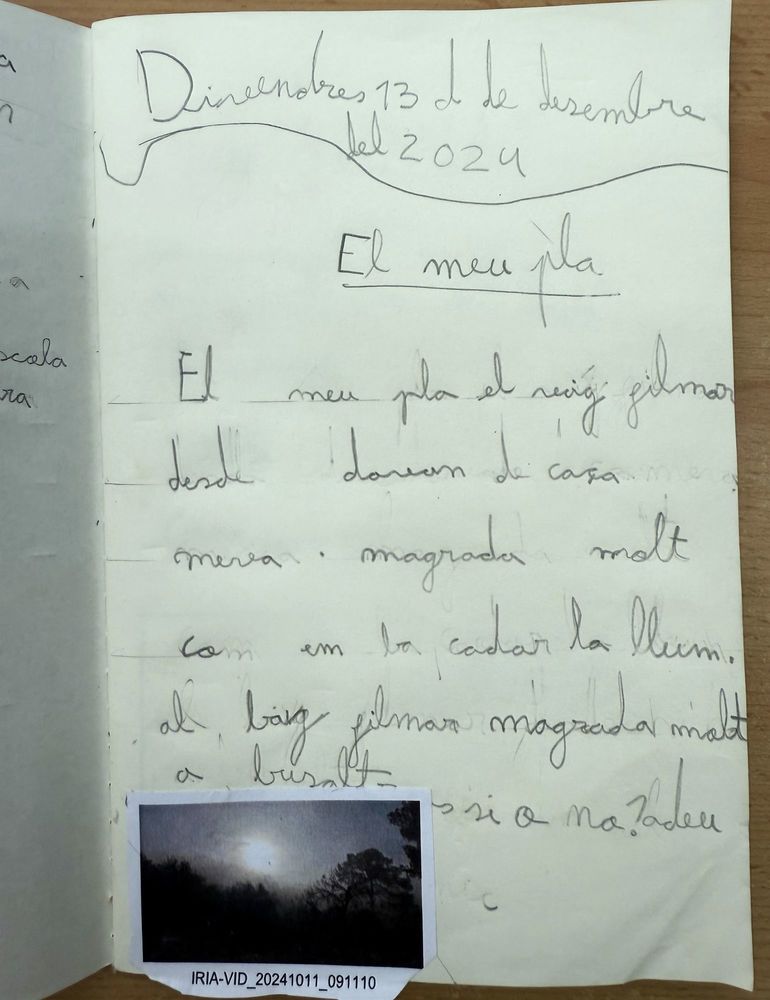 a
n
a
scola
ra
Divendres 13 d de desembre
del 2024
El meu pla
El meu pla el vaig filmar
desde davan de casa
meva. magrada molt
com em ba cadar la llum.
al baig filmar magrada molt
a
s si o no? adeu
IRIA-VID_20241011_091110